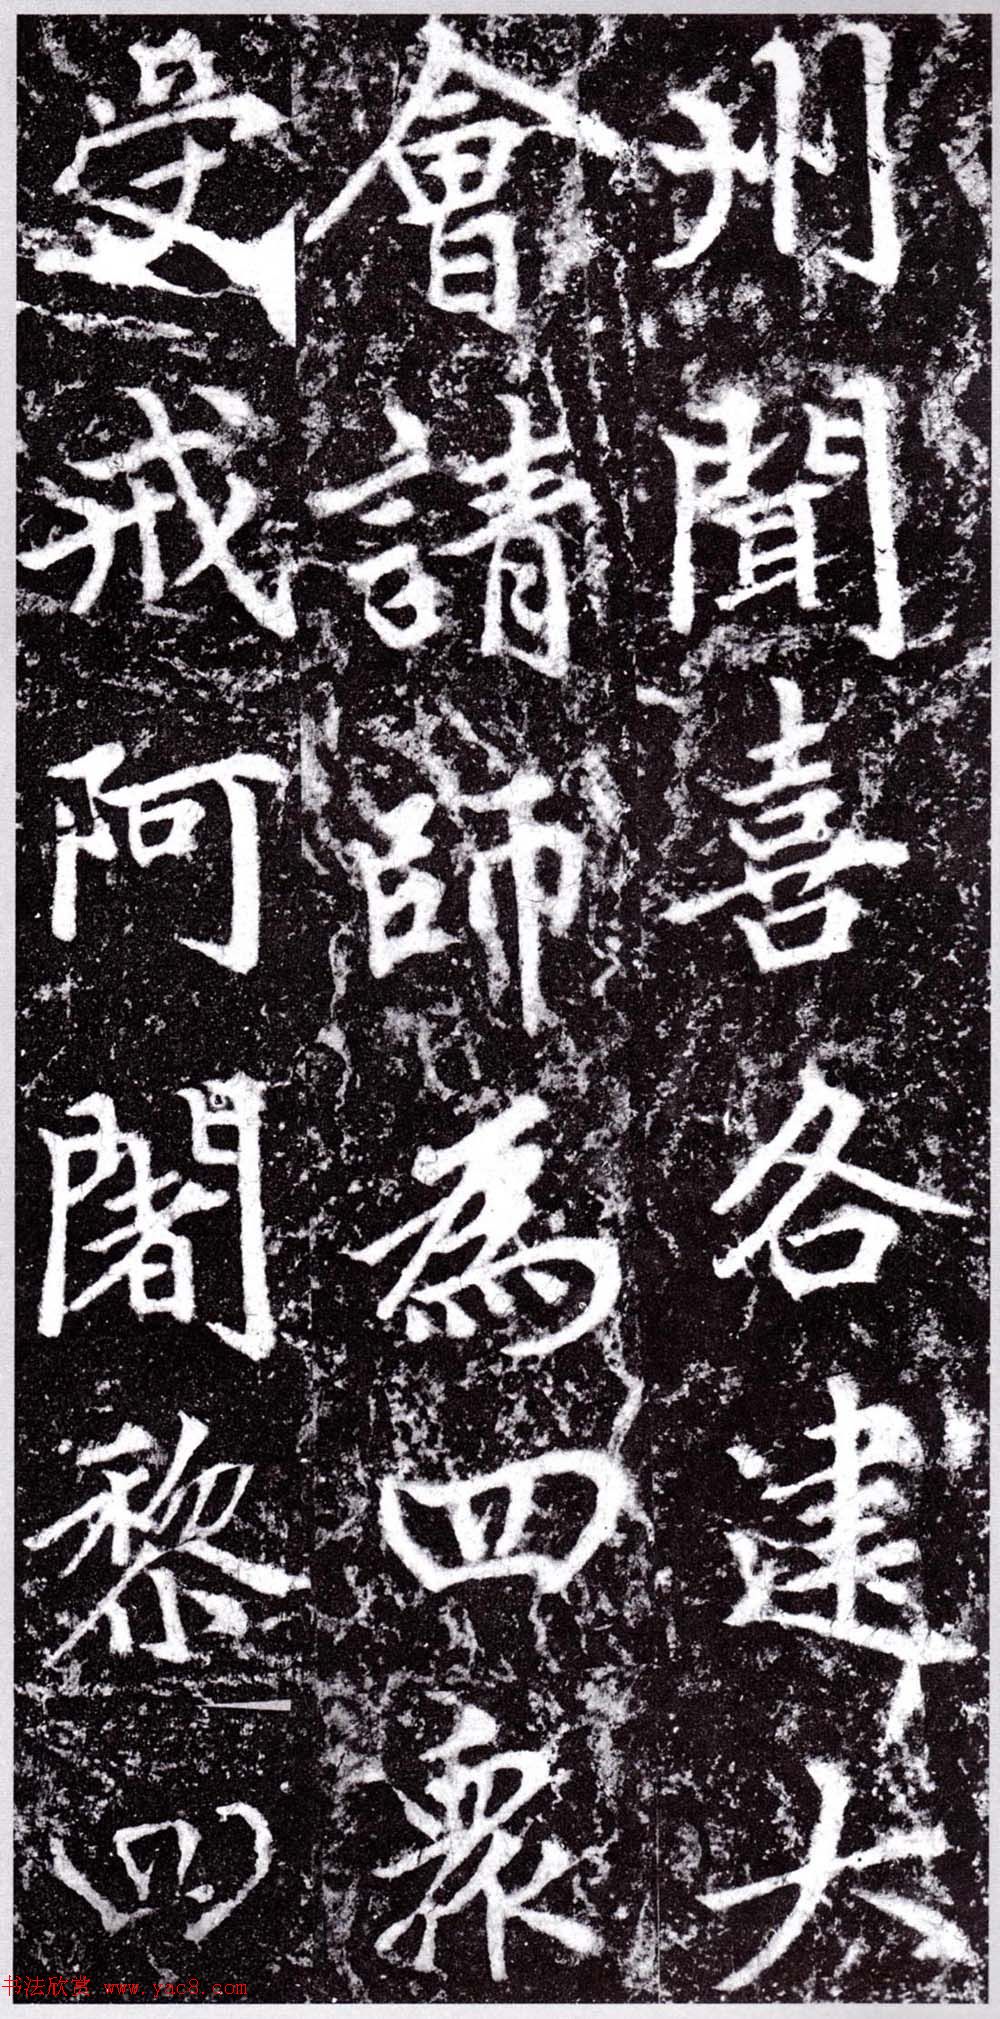 州聞喜各建大
會請師為四眾
受戒阿闍黎四
书法欣赏 www.yac8.com